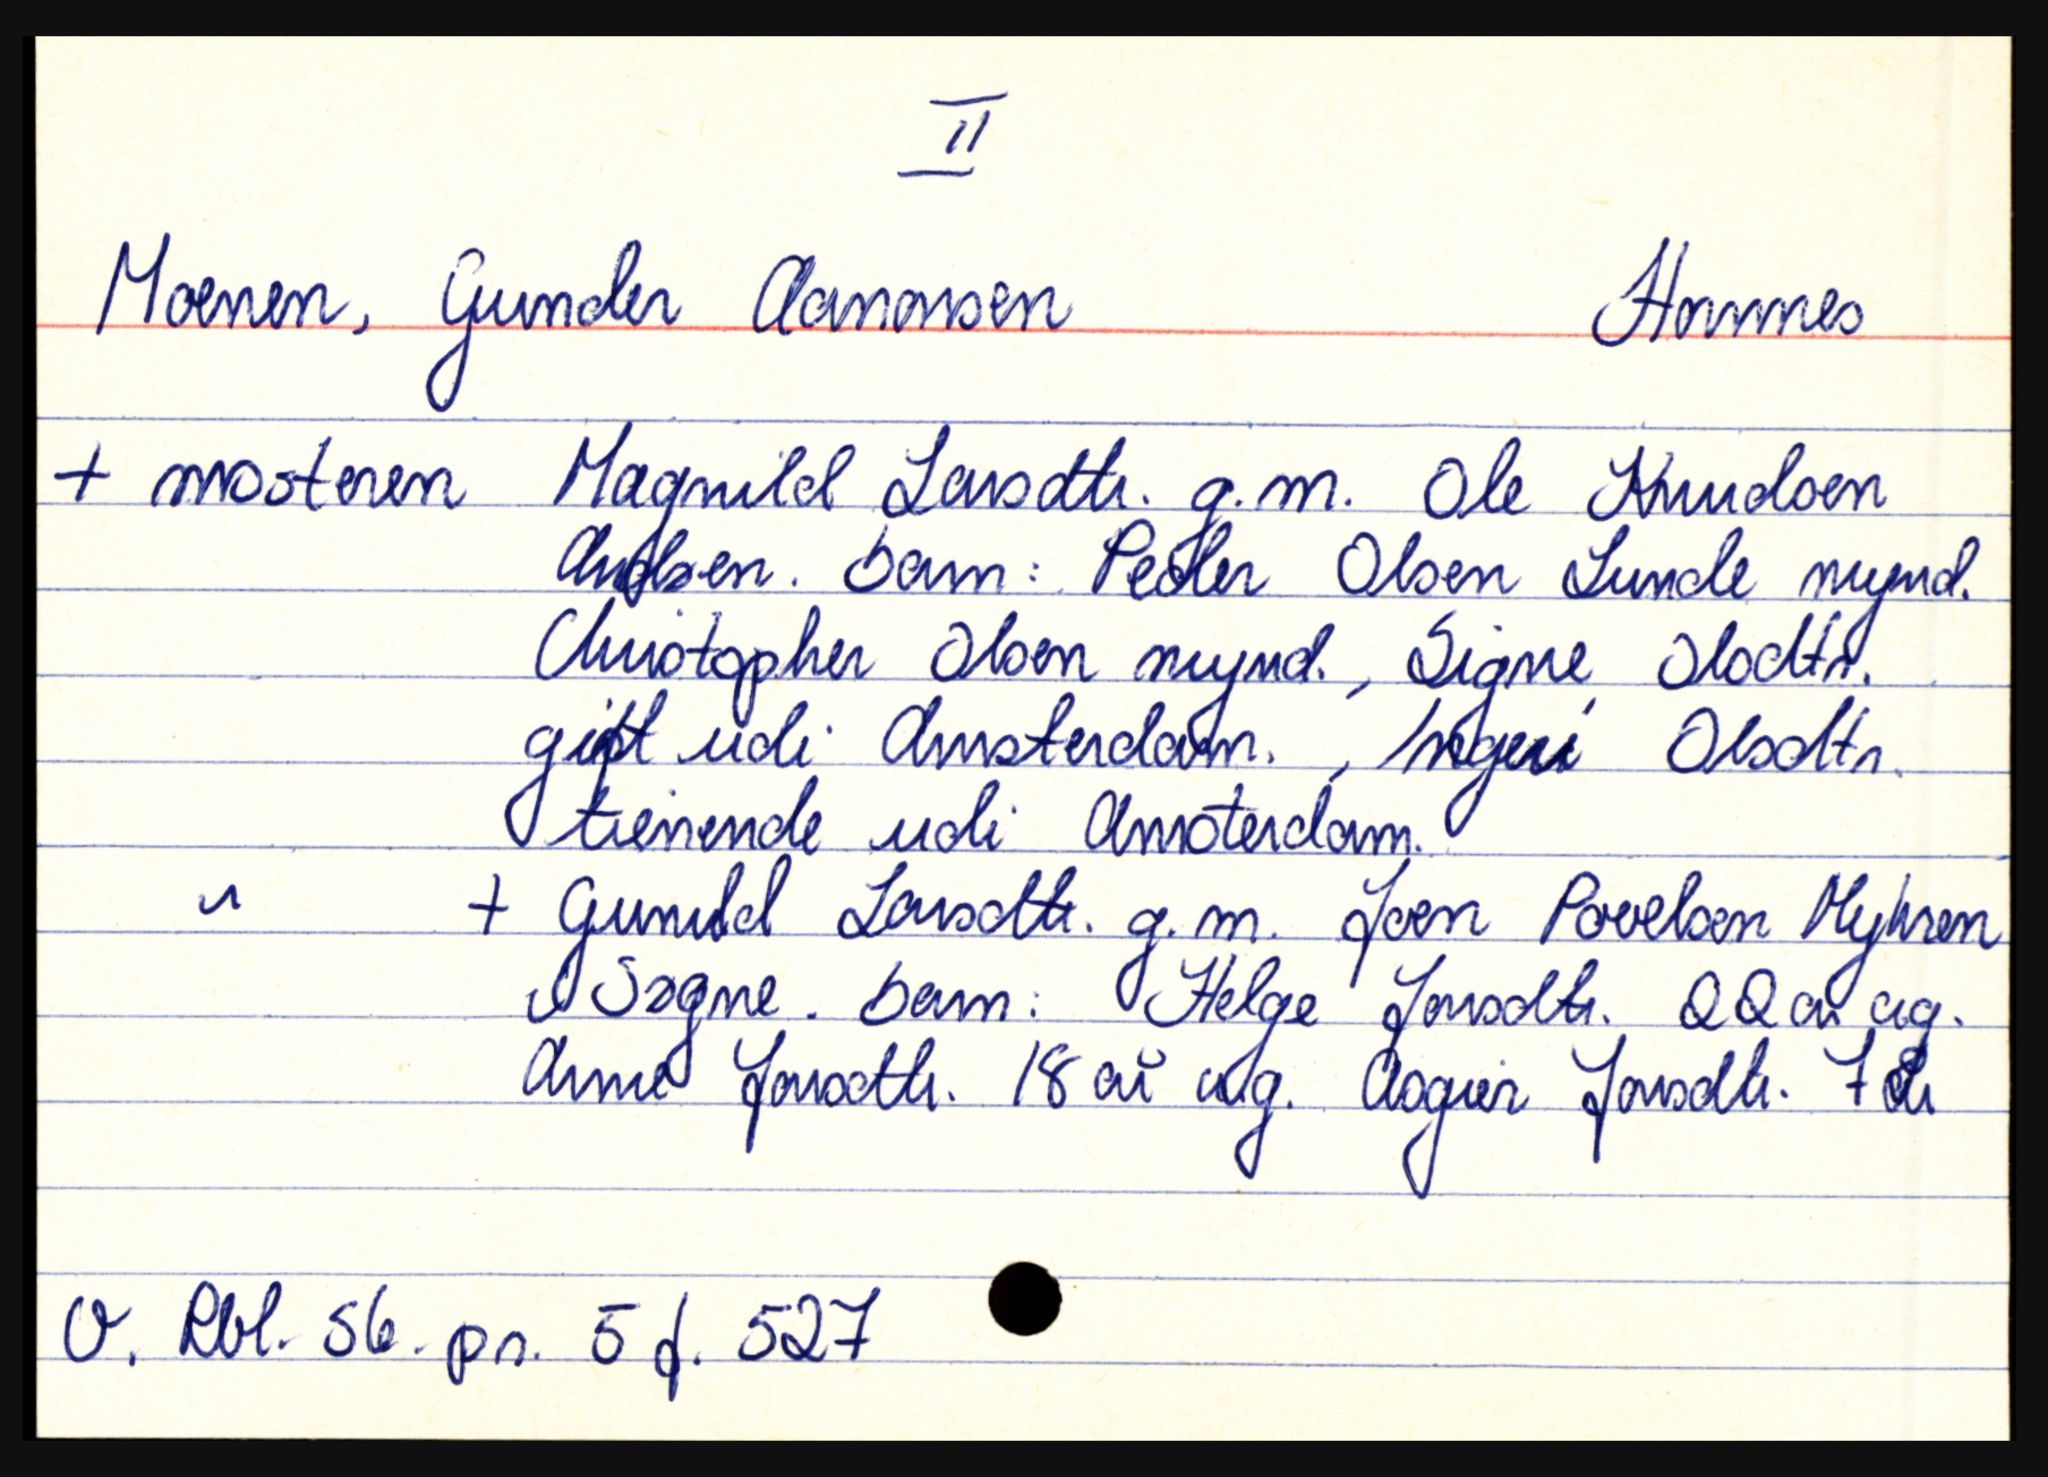 II
Moenen, Gunder Aanonsen Homnes
+ mosteren Magnild Larsdtr. g.m. Ole Knudsen
barn: Peder Olsen Lunde mynd.
Christopher Olsen mynd., Signe Olsdtr.
gift udi Amsterdam., Ingeri Olsdtr.
tienende udi Amsterdam.
" + Gunild Larsdtr. g.m. Joen Povelsen Myhren
i Søgne. barn: Helge Jonsdtr. 22 år ug.
Anne Jonsdtr. 18 år ug. Asgier Jonsdtr. 7 år
V. Rbl. 56. pr. 5 f. 527